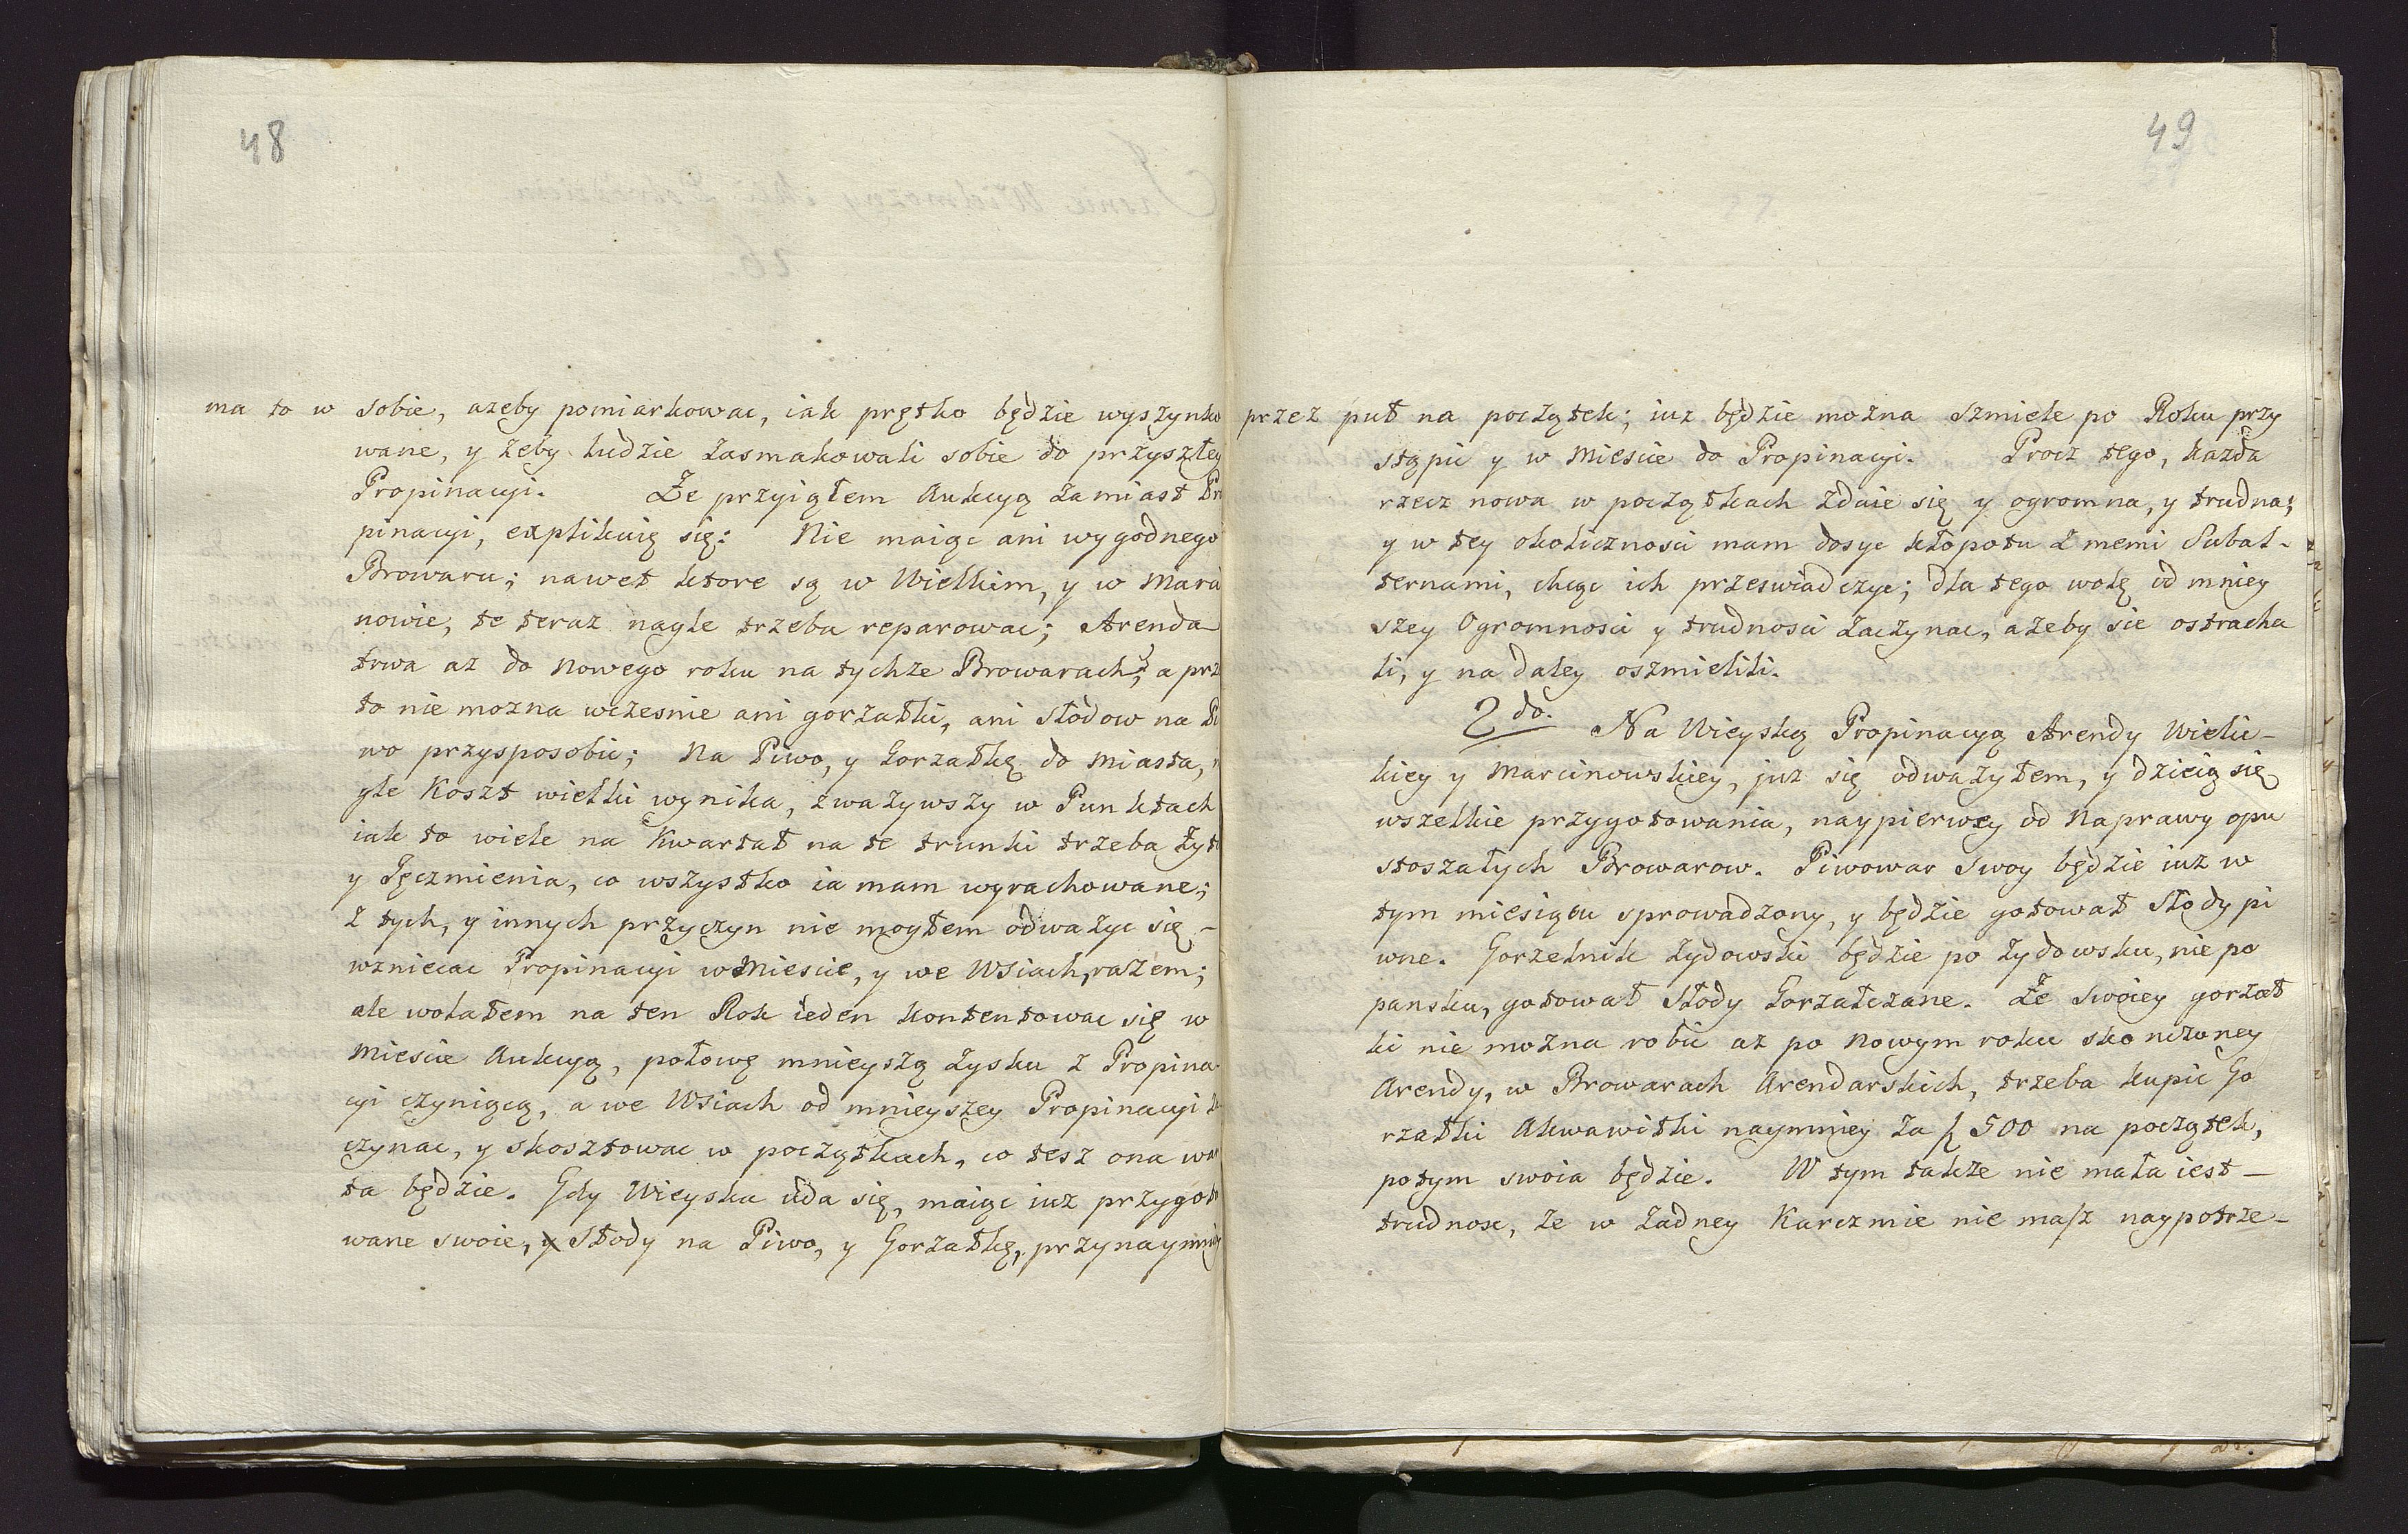 48
ma to w sobie, azeby pomiarkowac, iak prętko będzie wyszynko
wane, y zeby ludzie zasmakowali sobie do przyszłey
Propinacyi. Że przyiąłem Aukcyą zamiast Pro
pinacyi, explikuię się: Nie maiąc ani wygodnego
Browaru; nawet ktore są w Wielkim, y w Marci
nowie, te teraz nagle trzeba reparowac; Arenda
trwa az do Nowego roku na tychze Browarach; a prze
to nie mozna wczesnie ani gorzałki, ani Słodow na Pi
wo przysposobic; Na Piwo, y Gorzałkę do Miasta,
gle Koszt wielki wynika, zwazywszy w Punktach
iak to wiele na Kwartał na te trunki trzeba Żyta
y Jęczmienia, co wszystko ia mam wyrachowane;
z tych, y innych przyczyn nie mogłem odwazyc się -
wzniecac Propinacyi w Miescie, y we Wsiach, razem;
ale wolałem na ten Rok ieden kontentowac się w
Miescie Aukcyą, połowę mnieyszą zysku z Propina
cyi czyniącą, a we Wsiach od mnieyszey Propinacyi za
czynac, y skosztowac w początkach, co tesz ona war
ta będzie. Gdy Wieyska uda się, maiąc iuz przygoto
wane swoie, Słody na Piwo, y Gorzałkę, przynaymniey
49
przez puł na początek; iuz będzie mozna szmiele po Roku przy
stąpic y w Miescie do Propinacyi. Procz tego, kazda
rzecz nowa w początkach zdaie się y ogromna, y trudna;
y w tey okolicznosci mam dosyc kłopotu z memi Subal-
ternami, chcąc ich przeswiadczyc; dla tego wolę od mniey
szey Ogromnosci y trudnosci zaczynac, azeby sie ostracha
li, y na daley oszmielili.
2do. Na Wieyską Propinacyą Arendy Wielic-
kiey y Marcinowskiey, juz się odwazyłem, y dzieią się
wszelkie przygotowania, naypierwey od Naprawy opu
stoszałych Browarow. Piwowar Swoy będzie iuz w
tym miesiącu sprowadzony, y będzie gotował Słody pi
wne. Gorzelnik Zydowski będzie po zydowsku, nie po
pansku, gotował Słody Gorzałczane. Że Swoiey gorzał
ki nie mozna robic az po Nowym roku skonczoney
Arendy, w Browarach Arendarskich, trzeba kupic Go
rzałki Akwawitki naymniey za f 500 na początek,
potym swoia będzie. W tym takze nie mała iest -
trudnosc, ze w Zadney Karczmie nie masz naypotrze-